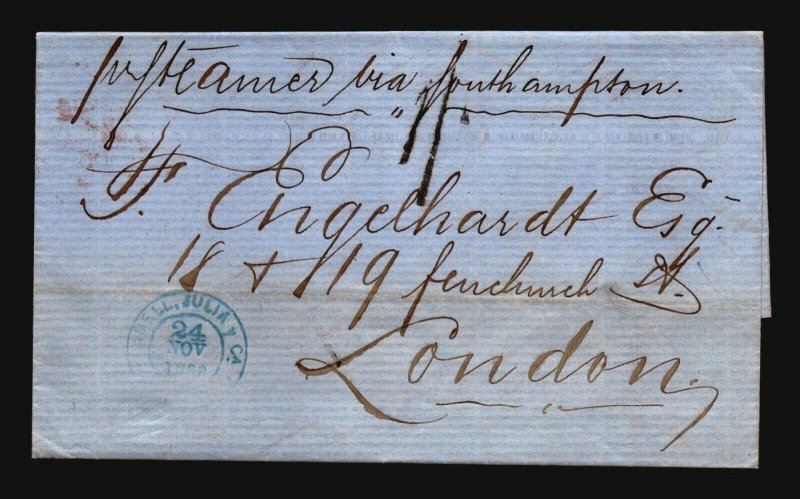 pr Steamer via Southampton.
F. Engelhardt Esq.
18 + 19 fenchurch St.
London.
JULIA Y Ca.
24
NOV